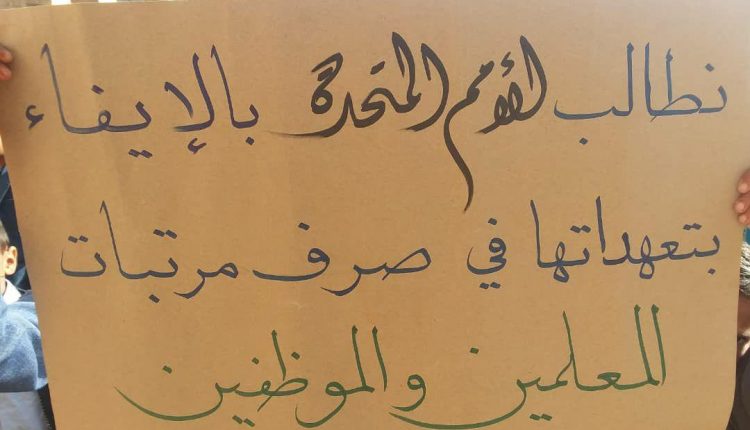 نطالب الأمم المتحدة بالإيفاء
بتعهداتها في صرف مرتبات
المعلمين والموظفين